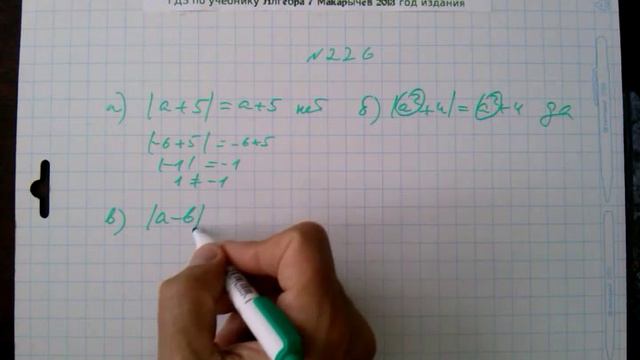 ГДЗ по учебнику Алгебра 7 Макарычев 2018 год издания
№226
а) |a+5| = a+5 нет б) |a²+4| = a²+4 да
|-6+5| = -6+5
|-1| = -1
1 ≠ -1
в) |a-b|